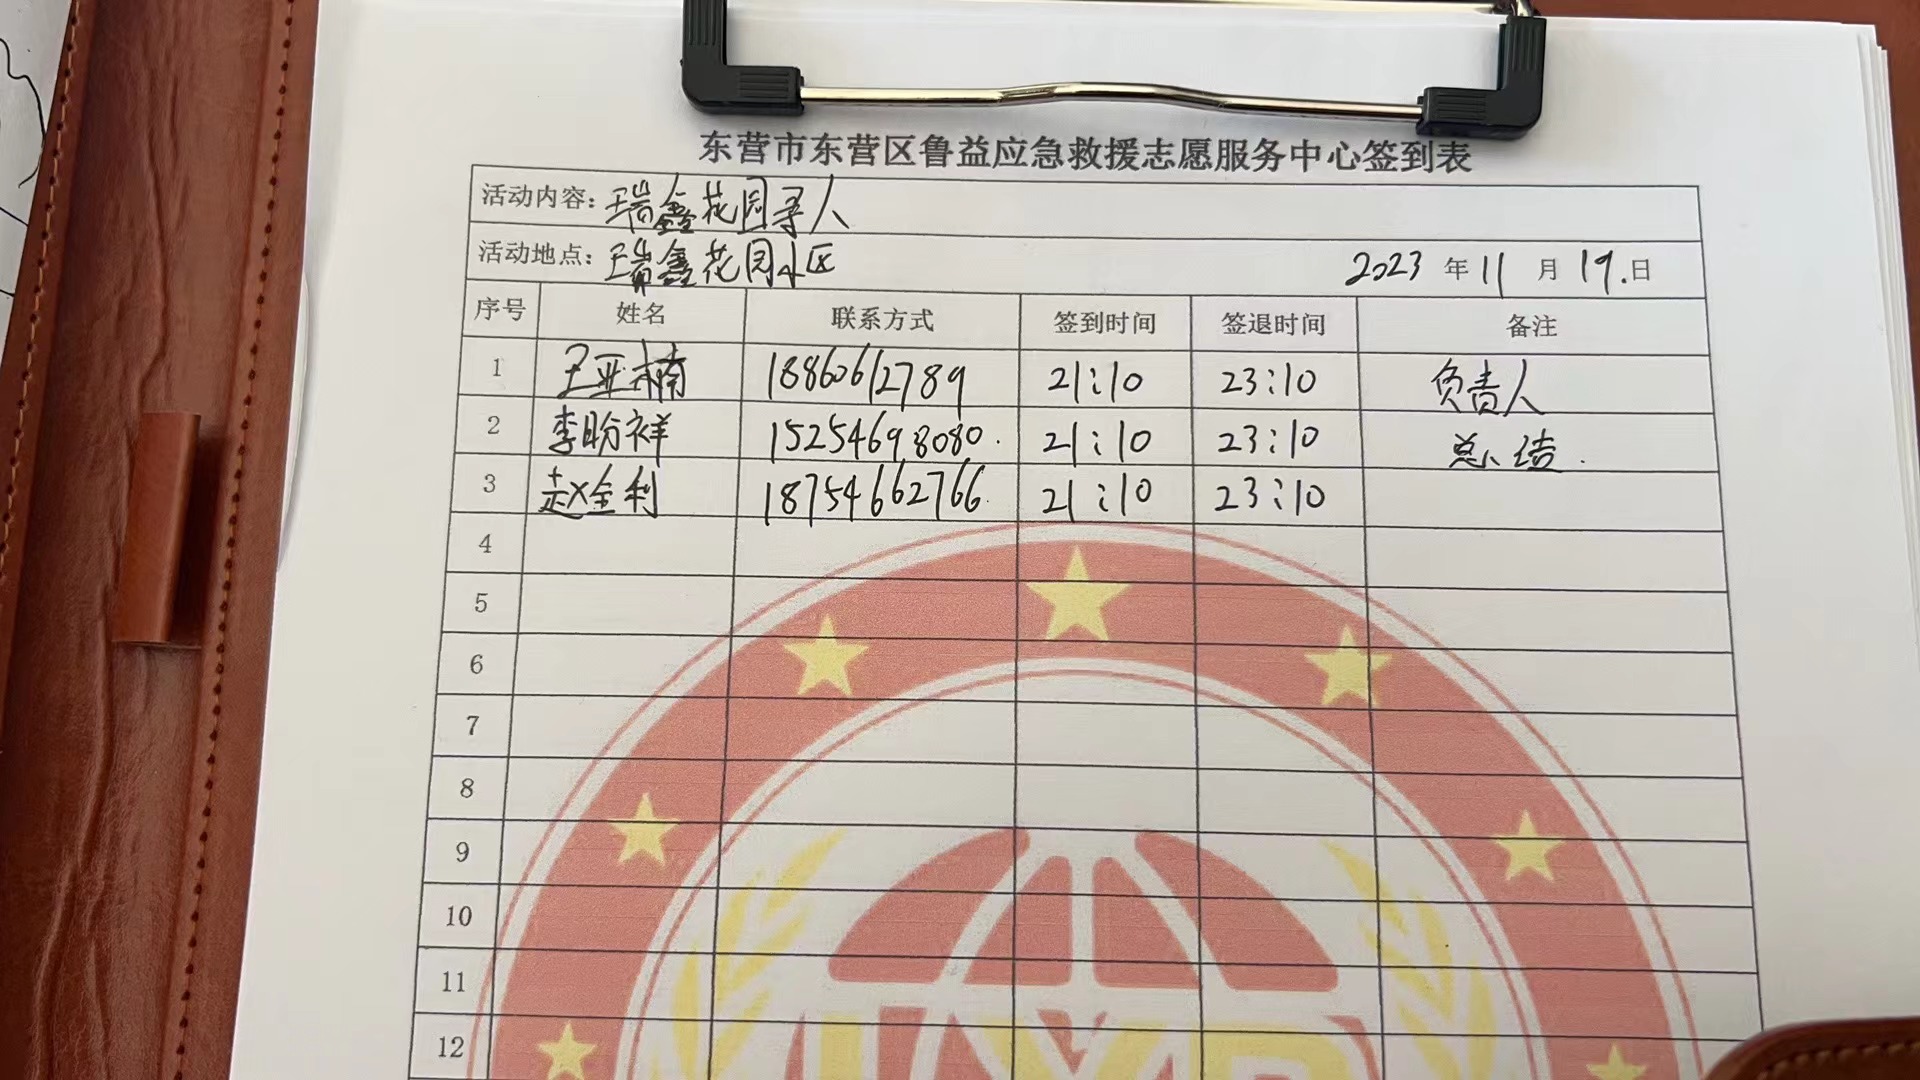 东营市东营区鲁益应急救援志愿服务中心签到表
活动内容：瑞鑫花园寻人
活动地点：瑞鑫花园小区 2023 年 11 月 19.日
序号 姓名 联系方式 签到时间 签退时间 备注
1 王亚楠 18860612789 21:10 23:10 负责人
2 李盼祥 15254698080. 21:10 23:10 总结.
3 赵金利 18754662766. 21:10 23:10
4
5
6
7
8
9
10
11
12